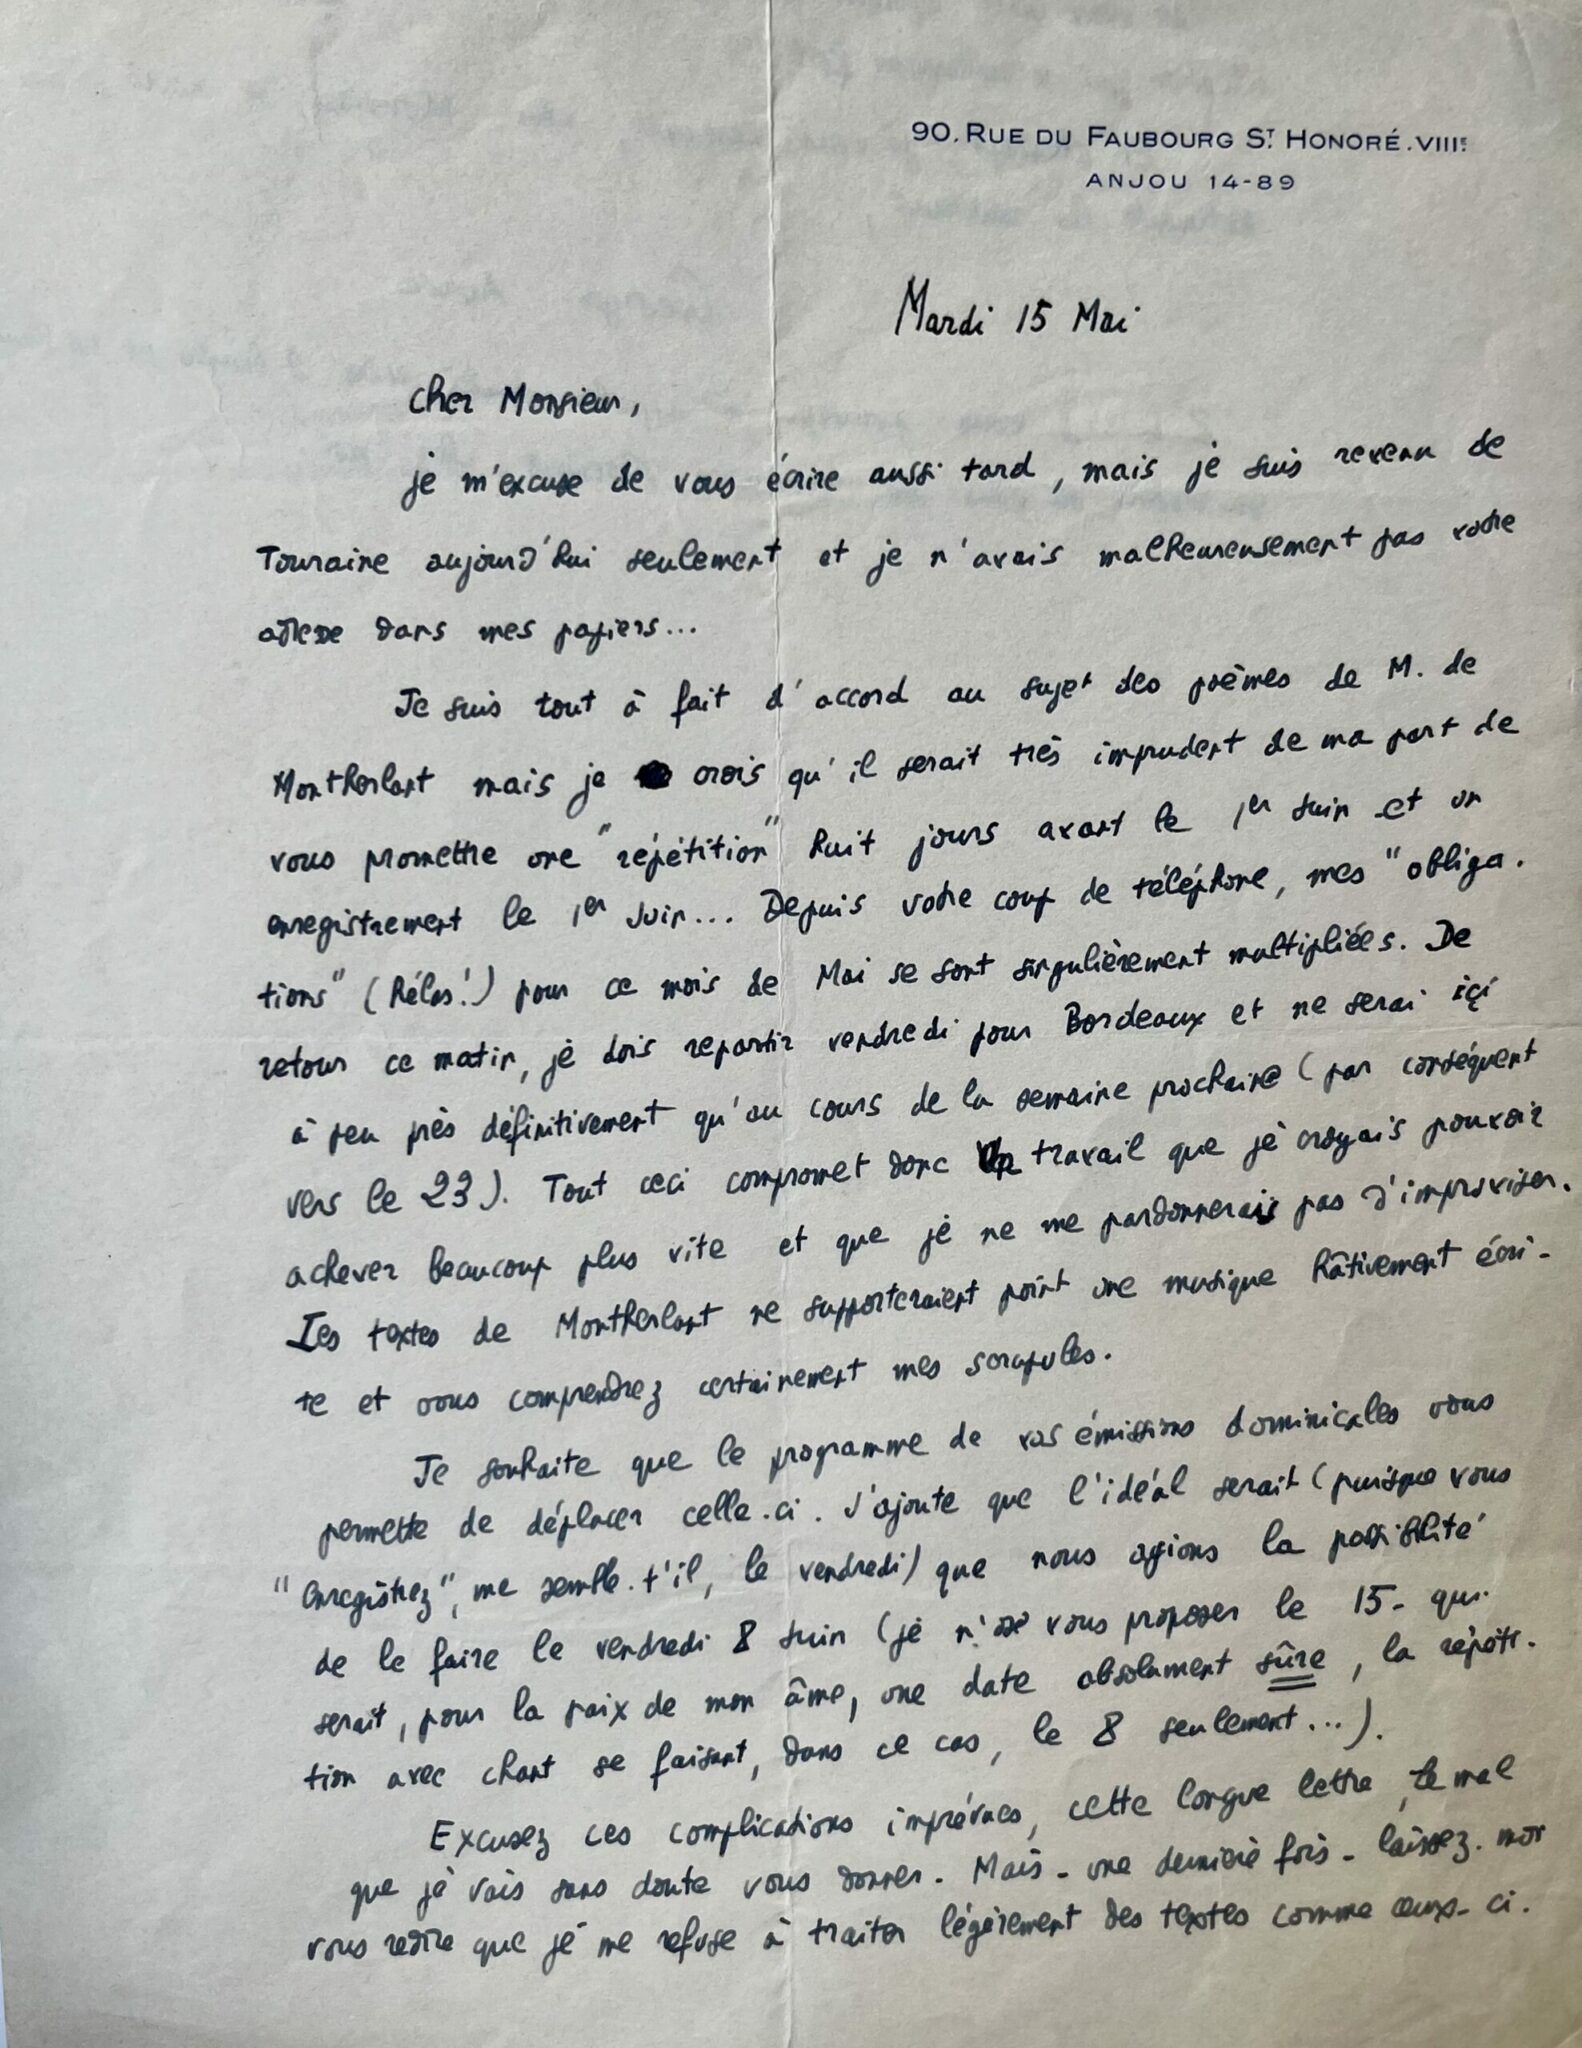 90. RUE DU FAUBOURG ST HONORÉ. VIIIE
ANJOU 14-89
Mardi 15 Mai
Cher Monsieur,
je m'excuse de vous écrire aussi tard, mais je suis revenu de
Touraine aujourd'hui seulement et je n'avais malheureusement pas votre
adresse dans mes papiers...
Je suis tout à fait d'accord au sujet des poèmes de M. de
Montherlant mais je crois qu'il serait très imprudent de ma part de
vous promettre une "répétition" huit jours avant le 1er Juin et un
enregistrement le 1er Juin... Depuis votre coup de téléphone, mes "obliga-
tions" (hélas!) pour ce mois de Mai se sont singulièrement multipliées. De
retour ce matin, je dois repartir vendredi pour Bordeaux et ne serai içi
à peu près définitivement qu'au cours de la semaine prochaine (par conséquent
vers le 23). Tout ceci compromet donc un travail que je croyais pouvoir
achever beaucoup plus vite et que je ne me pardonnerais pas d'improviser.
Les textes de Montherlant ne supporteraient point une musique hâtivement écri-
te et vous comprendrez certainement mes scrupules.
Je souhaite que le programme de vos émissions dominicales vous
permette de déplacer celle-ci. J'ajoute que l'idéal serait (puisque vous
"enregistrez", me semble-t'il, le vendredi) que nous ayions la possibilité
de le faire le vendredi 8 Juin (je n'ose vous proposer le 15- qui
serait, pour la paix de mon âme, une date absolument sûre, la répéti-
tion avec chant se faisant, dans ce cas, le 8 seulement...).
Excusez ces complications imprévues, cette longue lettre, le mal
que je vais sans doute vous donner. Mais - une dernière fois - laissez-moi
vous redire que je me refuse à traiter légèrement des textes comme ceux-ci.